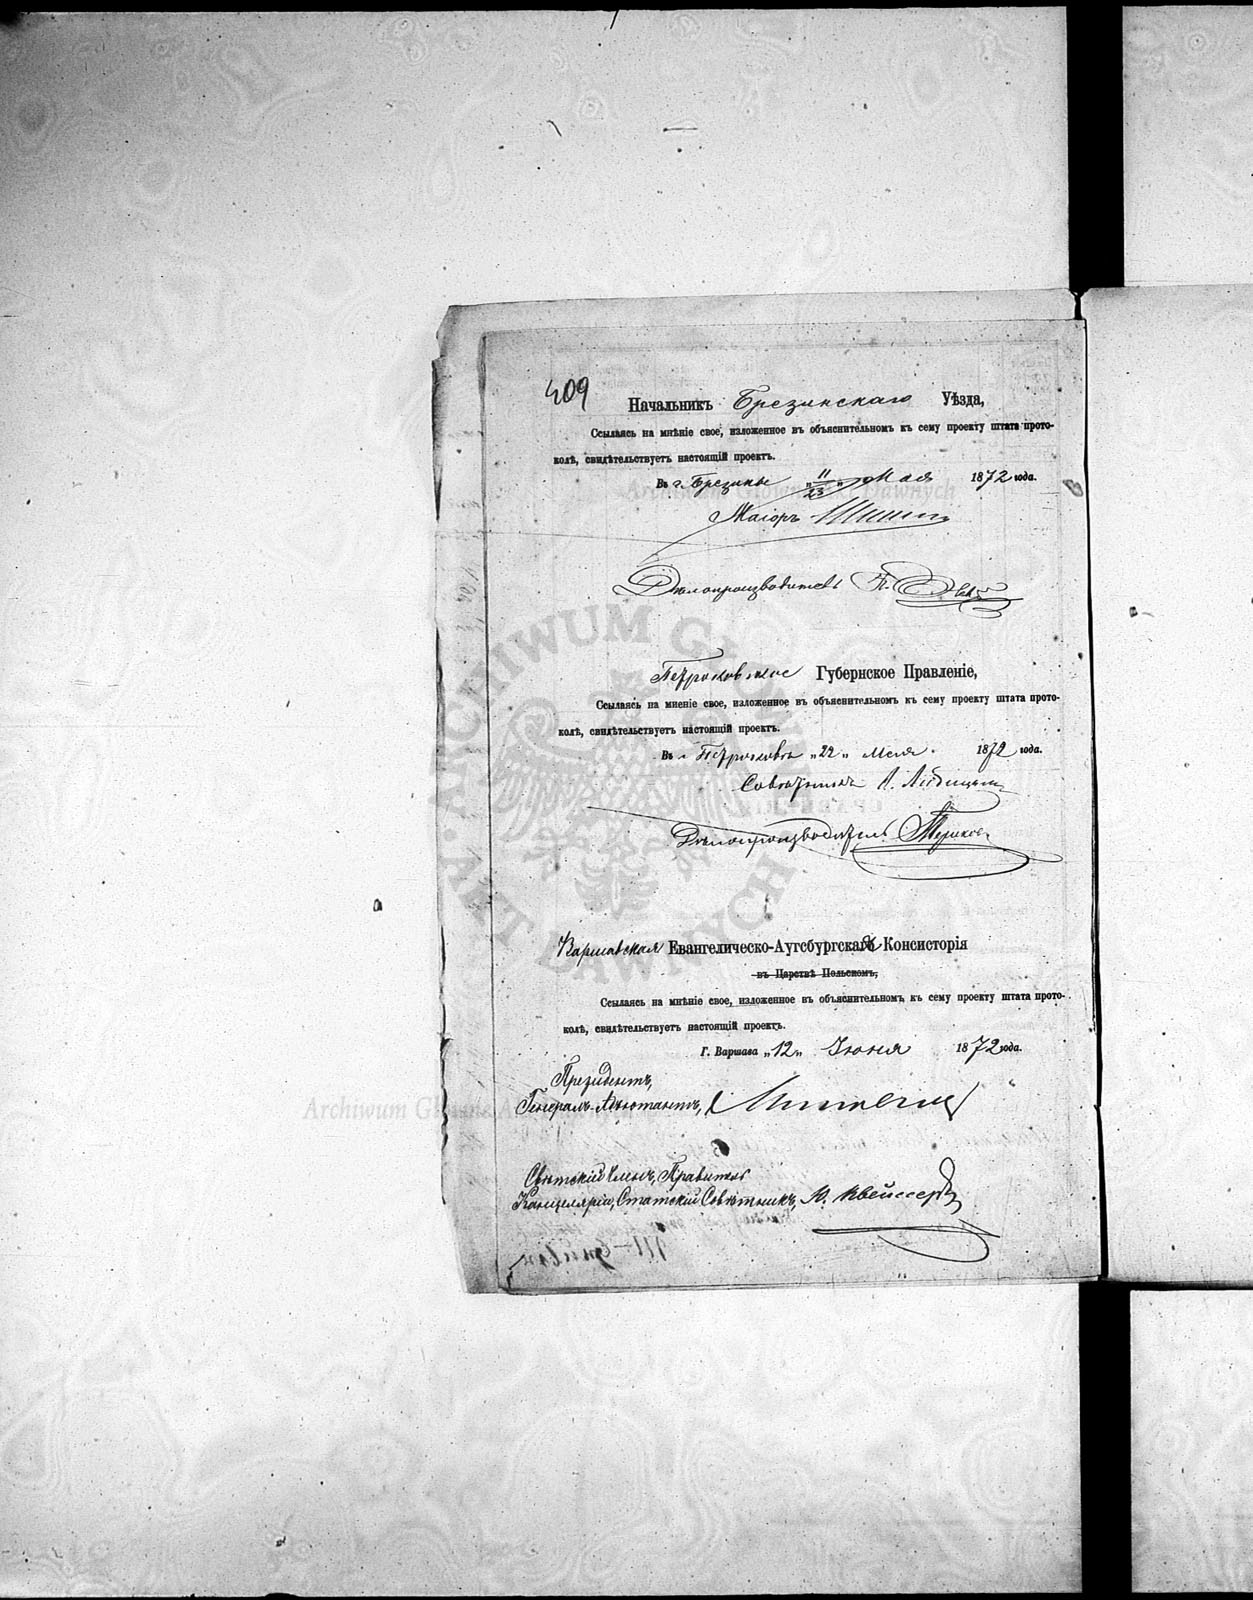 409
Начальникъ Брезинскаго Уѣзда,
Ссылаясь на мнѣніе свое, изложенное въ объяснительномъ къ сему проекту штата прото-
колѣ, свидѣтельствуетъ настоящій проектъ.
Въ г. Брезины „11/23„ Мая 1872 года.
Маіоръ
Дѣлопроизводитель
Петроковское Губернское Правленіе,
Ссылаясь на мнение свое, изложенное въ объяснительномъ къ сему проекту штата прото-
колѣ, свидѣтельствуетъ настоящій проектъ.
Въ г. Петроковѣ „22„ Мая 1872 года.
Совѣтникъ
Дѣлопроизводитель
Варшавская Евангелическо-Аугсбургская Консисторія
въ Царствѣ Польскомъ,
Ссылаясь на мнѣніе свое, изложенное въ объяснительномъ къ сему проекту штата прото-
колѣ, свидѣтельствуетъ настоящій проектъ.
Г. Варшава „12„ Іюня 1872 года.
Президентъ,
Генералъ-Адъютантъ,
Свѣтскій Членъ, Правитель
Канцеляріи, Статскій Совѣтникъ,
ARCHIWUM GŁÓWNE AKT DAWNYCH
Archiwum Główne Akt Dawnych